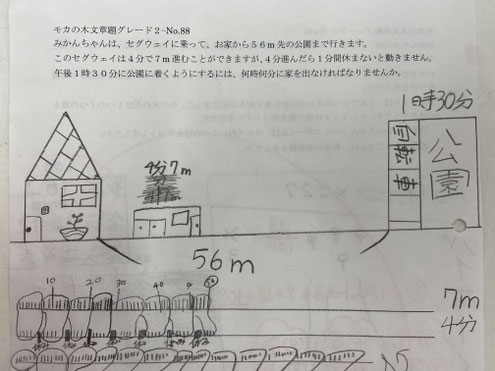 モカの木文章題グレード2−No.88
みかんちゃんは、セグウェイに乗って、お家から56m先の公園まで行きます。
このセグウェイは4分で7m進むことができますが、4分進んだら1分間休まないと動きません。
午後1時30分に公園に着くようにするには、何時何分に家を出なければなりませんか。
1時30分
4分7m
自転車
公園
56m
10 20 30 40
7m
4分